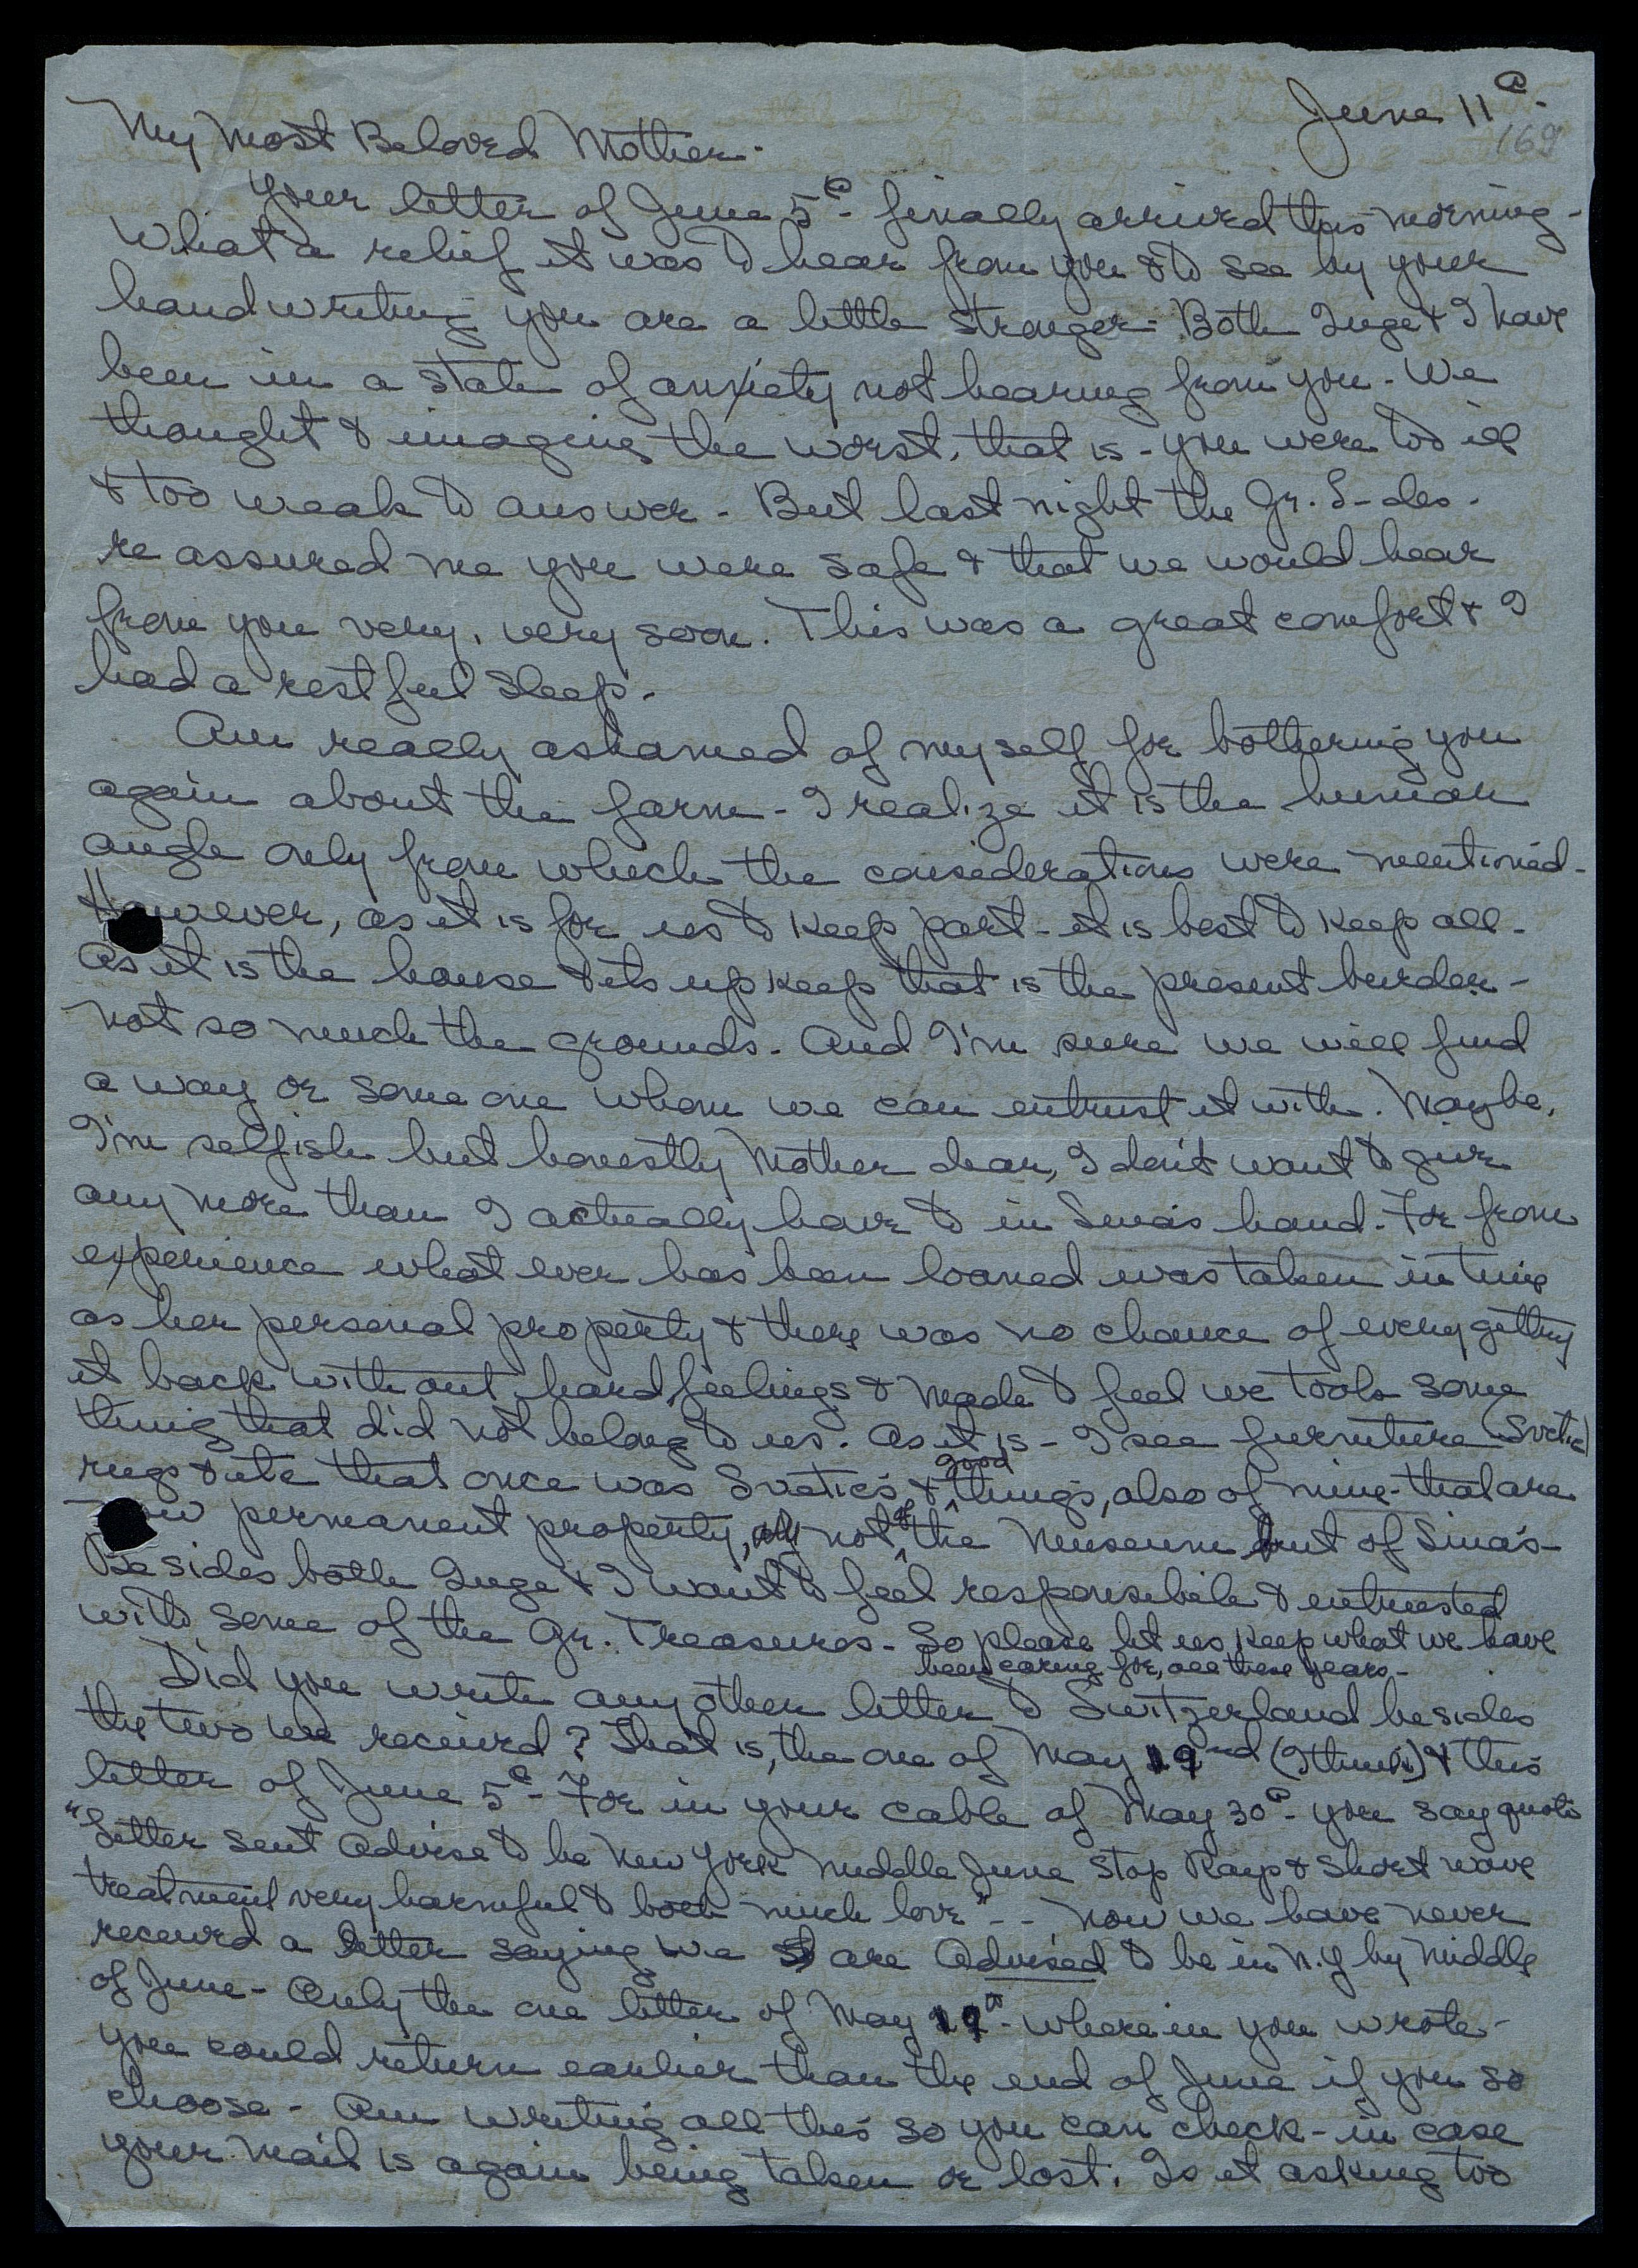 June 11th.
169
My Most Beloved Mother-
Your letter of June 5th- finally arrived this morning-
What a relief it was to hear from you & to see by your
handwriting you are a little stronger- Both Inge & I have
been in a state of anxiety not hearing from you- We
thought & imagine the worst, that is- you were too ill
& too weak to answer- But last night the Gr. L-des-
re assured me you were safe & that we would hear
from you very, very soon. This was a great comfort & I
had a restful sleep-
Am really ashamed of myself for bothering you
again about the farm- I realize it is the human
angle only from which the considerations were mentioned-
However, as it is for us to keep part- it is best to keep all-
As it is the house & its up keep that is the present burden-
not so much the grounds- And I'm sure we will find
a way or some one whom we can entrust it with. Maybe,
I'm selfish but honestly Mother dear, I don't want to give
any more than I actually have to in Sina's hand- For from
experience what ever has been loaned was taken in time
as her personal property & there was no chance of every getting
it back without hard feelings & made to feel we took some
thing that did not belong to us. As it is- I see furniture (Svetic)
rugs & ete that once was Svetic's & good things, also of mine- that are
now permanent property, not of the Museum but of Sina's-
Besides both Inge & I want to feel responsebile & entrusted
with some of the Gr. Treasures- So please let us keep what we have
been caring for, all these years-
Did you write any other letter to Switzerland besides
the two we received? That is, the one of May 19nd (I think) & this
letter of June 5th- For in your cable of May 30th- you say quote
"Letter sent Advise to be New York middle June Stop Rays & Short wave
treatment very harmful to both much love"- - Now we have never
received a letter saying we are Advised to be in N.Y by middle
of June- Only the one letter of May 19th- wherein you wrote-
you could return earlier than the end of June if you so
choose- Am writing all this so you can check- in case
your mail is again being taken or lost. Is it asking too